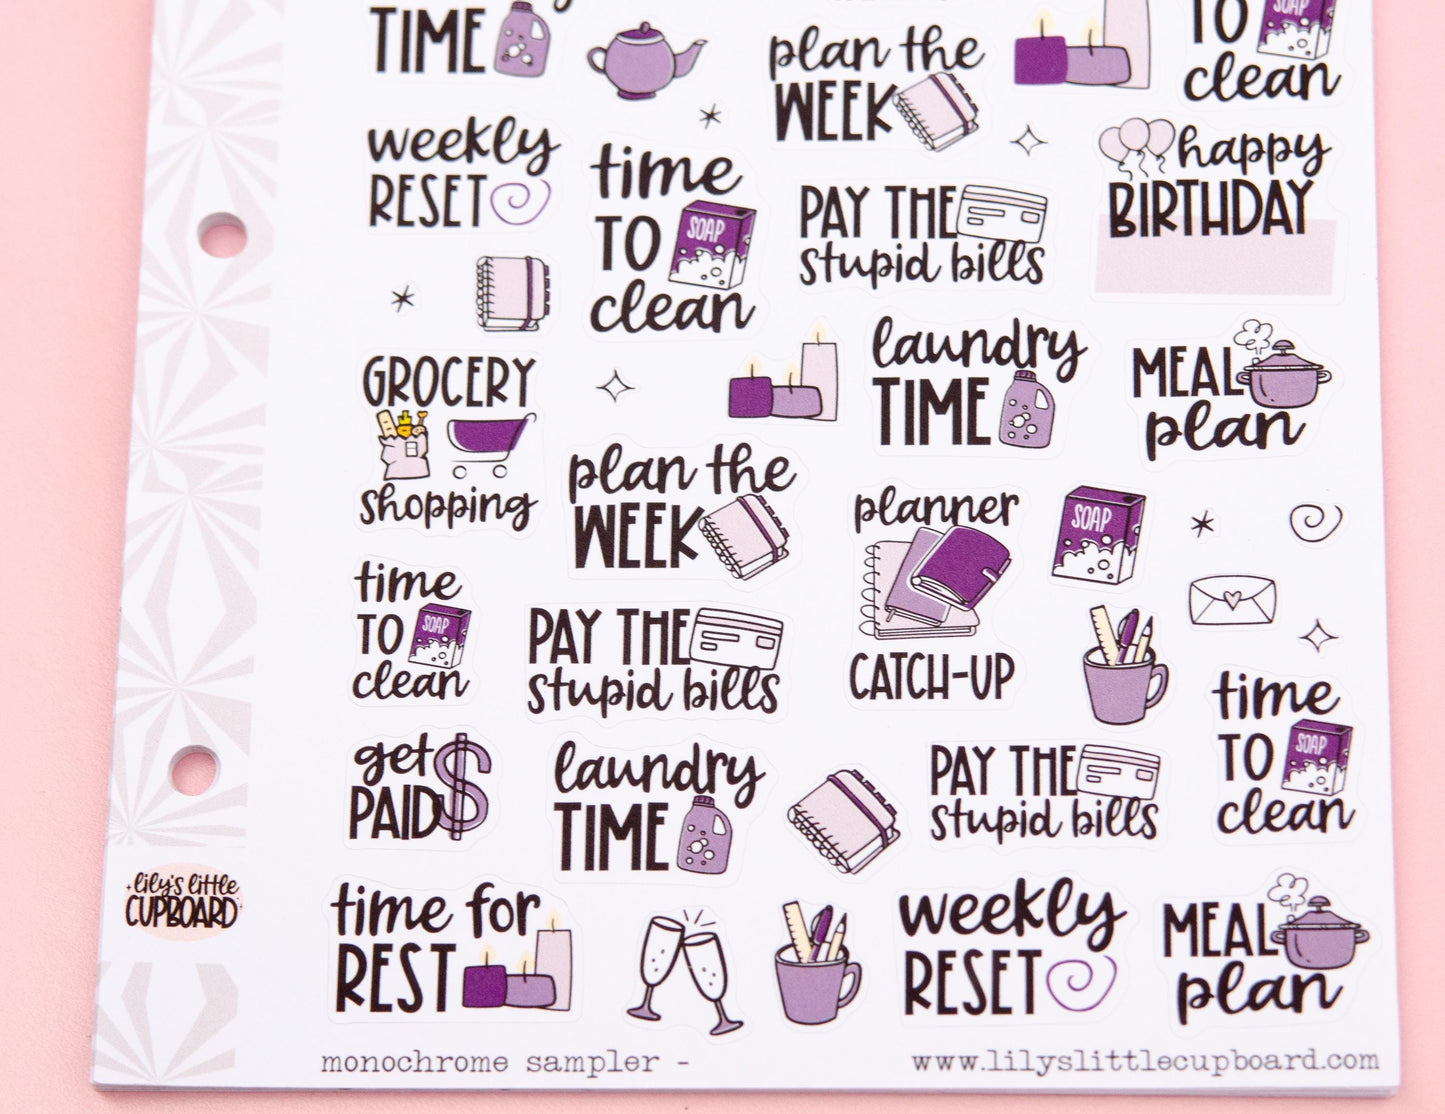 TIME
plan the
WEEK
TO
SOAP
clean
weekly
RESET
time
TO
SOAP
clean
PAY THE
stupid bills
happy
BIRTHDAY
GROCERY
shopping
laundry
TIME
MEAL
plan
plan the
WEEK
planner
CATCH-UP
SOAP
time
TO
SOAP
clean
PAY THE
stupid bills
time
TO
SOAP
clean
get
PAID
$
laundry
TIME
PAY THE
stupid bills
lily's little
CUPBOARD
time for
REST
weekly
RESET
MEAL
plan
monochrome sampler -
www.lilyslittlecupboard.com